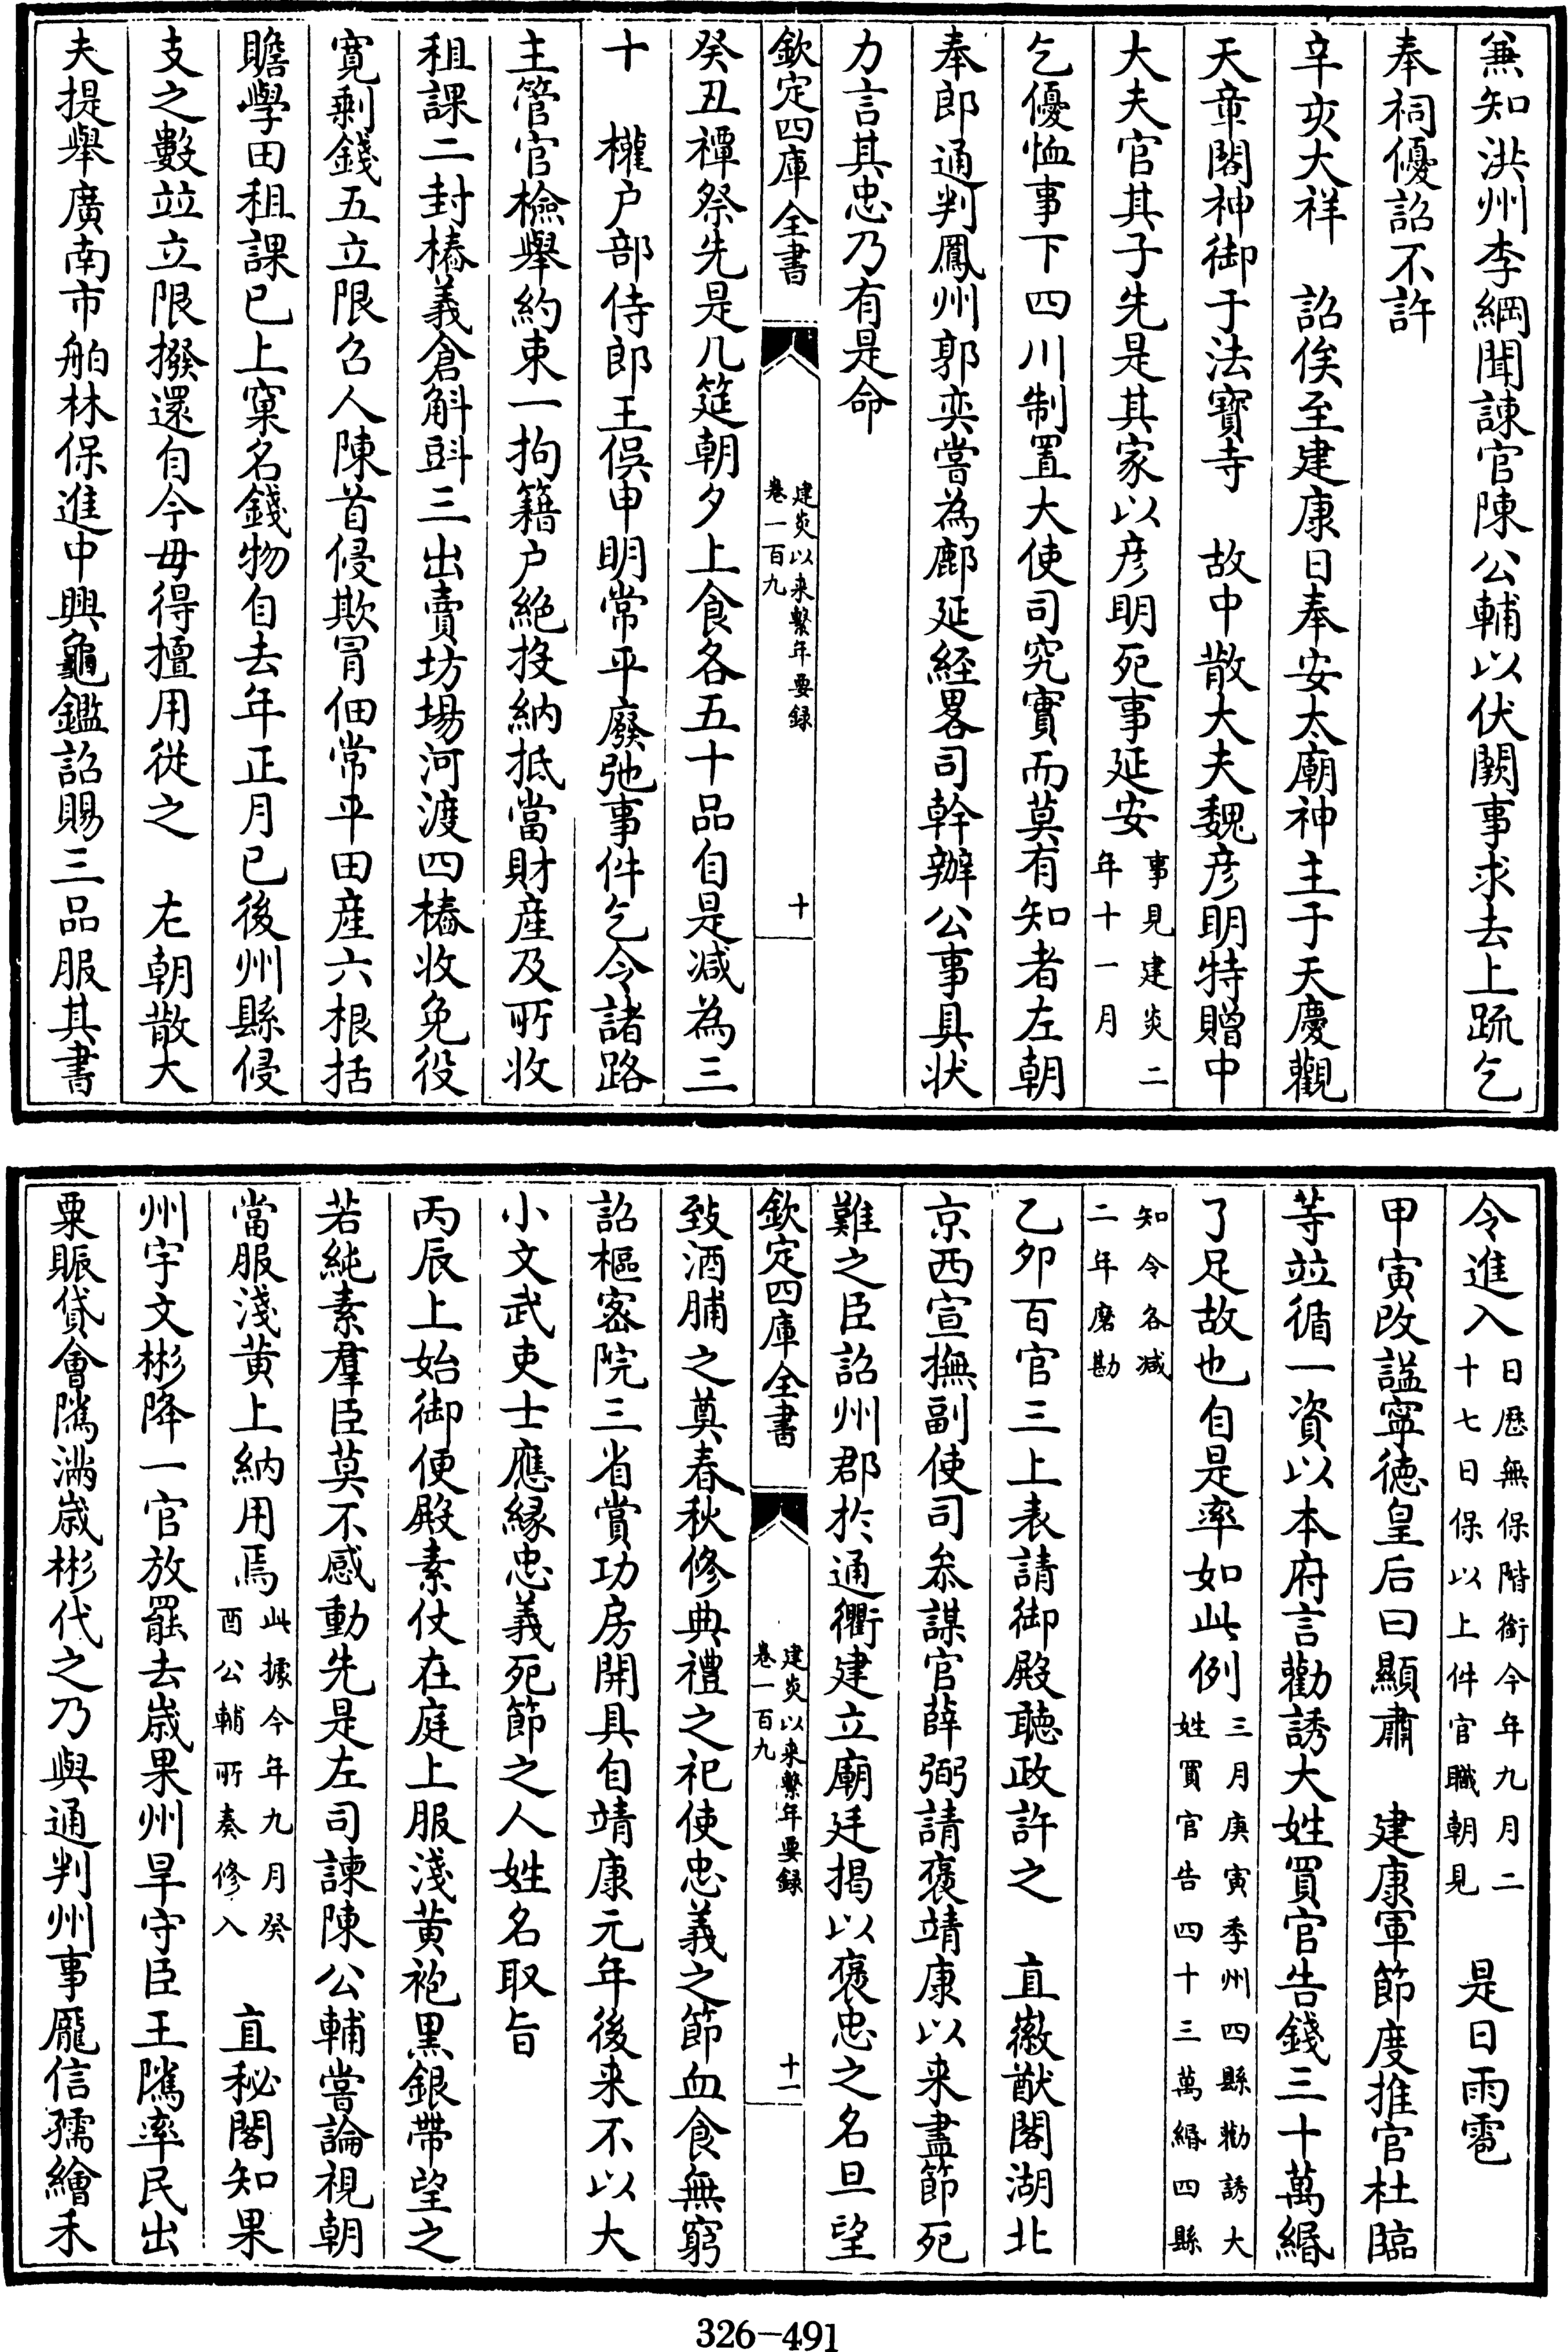 兼知洪州李綱聞諫官陳公輔以伏闕事求去上疏乞
奉祠優詔不許
辛亥大祥　詔俟至建康日奉安太廟神主于天慶觀
天章閣神御于法寶寺　故中散大夫魏彦明特贈中
大夫官其子先是其家以彦明死事延安事見建炎二年十一月
乞優恤事下四川制置大使司究實而莫有知者左朝
奉郎通判鳳州郭奕嘗為鄜延經畧司幹辦公事具狀
力言其忠乃有是命
欽定四庫全書　建炎以来繫年要録卷一百九　十
癸丑禫祭先是几筵朝夕上食各五十品自是减為三
十　權户部侍郎王俁申明常平廢弛事件乞令諸路
主管官檢舉約束一拘籍户絶投納抵當財産及所收
租課二封樁義倉斛㪷三出賣坊場河渡四樁收免役
寛剩錢五立限召人陳首侵欺冐佃常平田産六根括
贍學田租課已上窠名錢物自去年正月已後州縣侵
支之數竝立限撥還自今毋得擅用從之　左朝散大
夫提舉廣南市舶林保進中興龜鑑詔賜三品服其書
令進入日厯無保階銜今年九月二十七日保以上件官職朝見　是日雨雹
甲寅改諡寜徳皇后曰顯肅　建康軍節度推官杜臨
等竝循一資以本府言勸誘大姓買官告錢三十萬緡
了足故也自是率如此例三月庚寅季州四縣勸誘大姓買官告四十三萬緡四縣
知令各减二年磨勘
乙卯百官三上表請御殿聽政許之　直徽猷閣湖北
京西宣撫副使司叅謀官薛弼請褒靖康以来盡節死
難之臣詔州郡於通衢建立廟廷揭以褒忠之名旦望
欽定四庫全書　建炎以来繫年要録卷一百九　十一
致酒脯之奠春秋修典禮之祀使忠義之節血食無窮
詔樞密院三省賞功房開具自靖康元年後来不以大
小文武吏士應縁忠義死節之人姓名取旨
丙辰上始御便殿素仗在庭上服淺黄袍黒銀帶望之
若純素羣臣莫不感動先是左司諫陳公輔嘗論視朝
當服淺黄上納用焉此據今年九月癸酉公輔所奏修入　直秘閣知果
州宇文彬降一官放罷去嵗果州旱守臣王隲率民出
粟賑貸會隲滿嵗彬代之乃與通判州事龎信孺繪禾
326-491